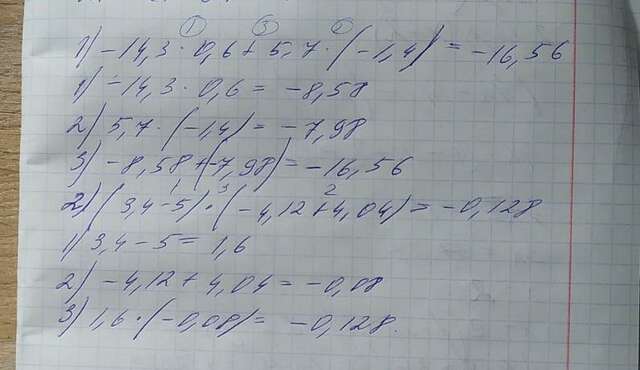 ① ③ ②
1) -14,3 · 0,6 + 5,7 · (-1,4) = -16,56
1) -14,3 · 0,6 = -8,58
2) 5,7 · (-1,4) = -7,98
3) -8,58 + (-7,98) = -16,56
1 3 2
2) (3,4 - 5) · (-4,12 + 4,04) = -0,128
1) 3,4 - 5 = 1,6
2) -4,12 + 4,04 = -0,08
3) 1,6 · (-0,08) = -0,128.